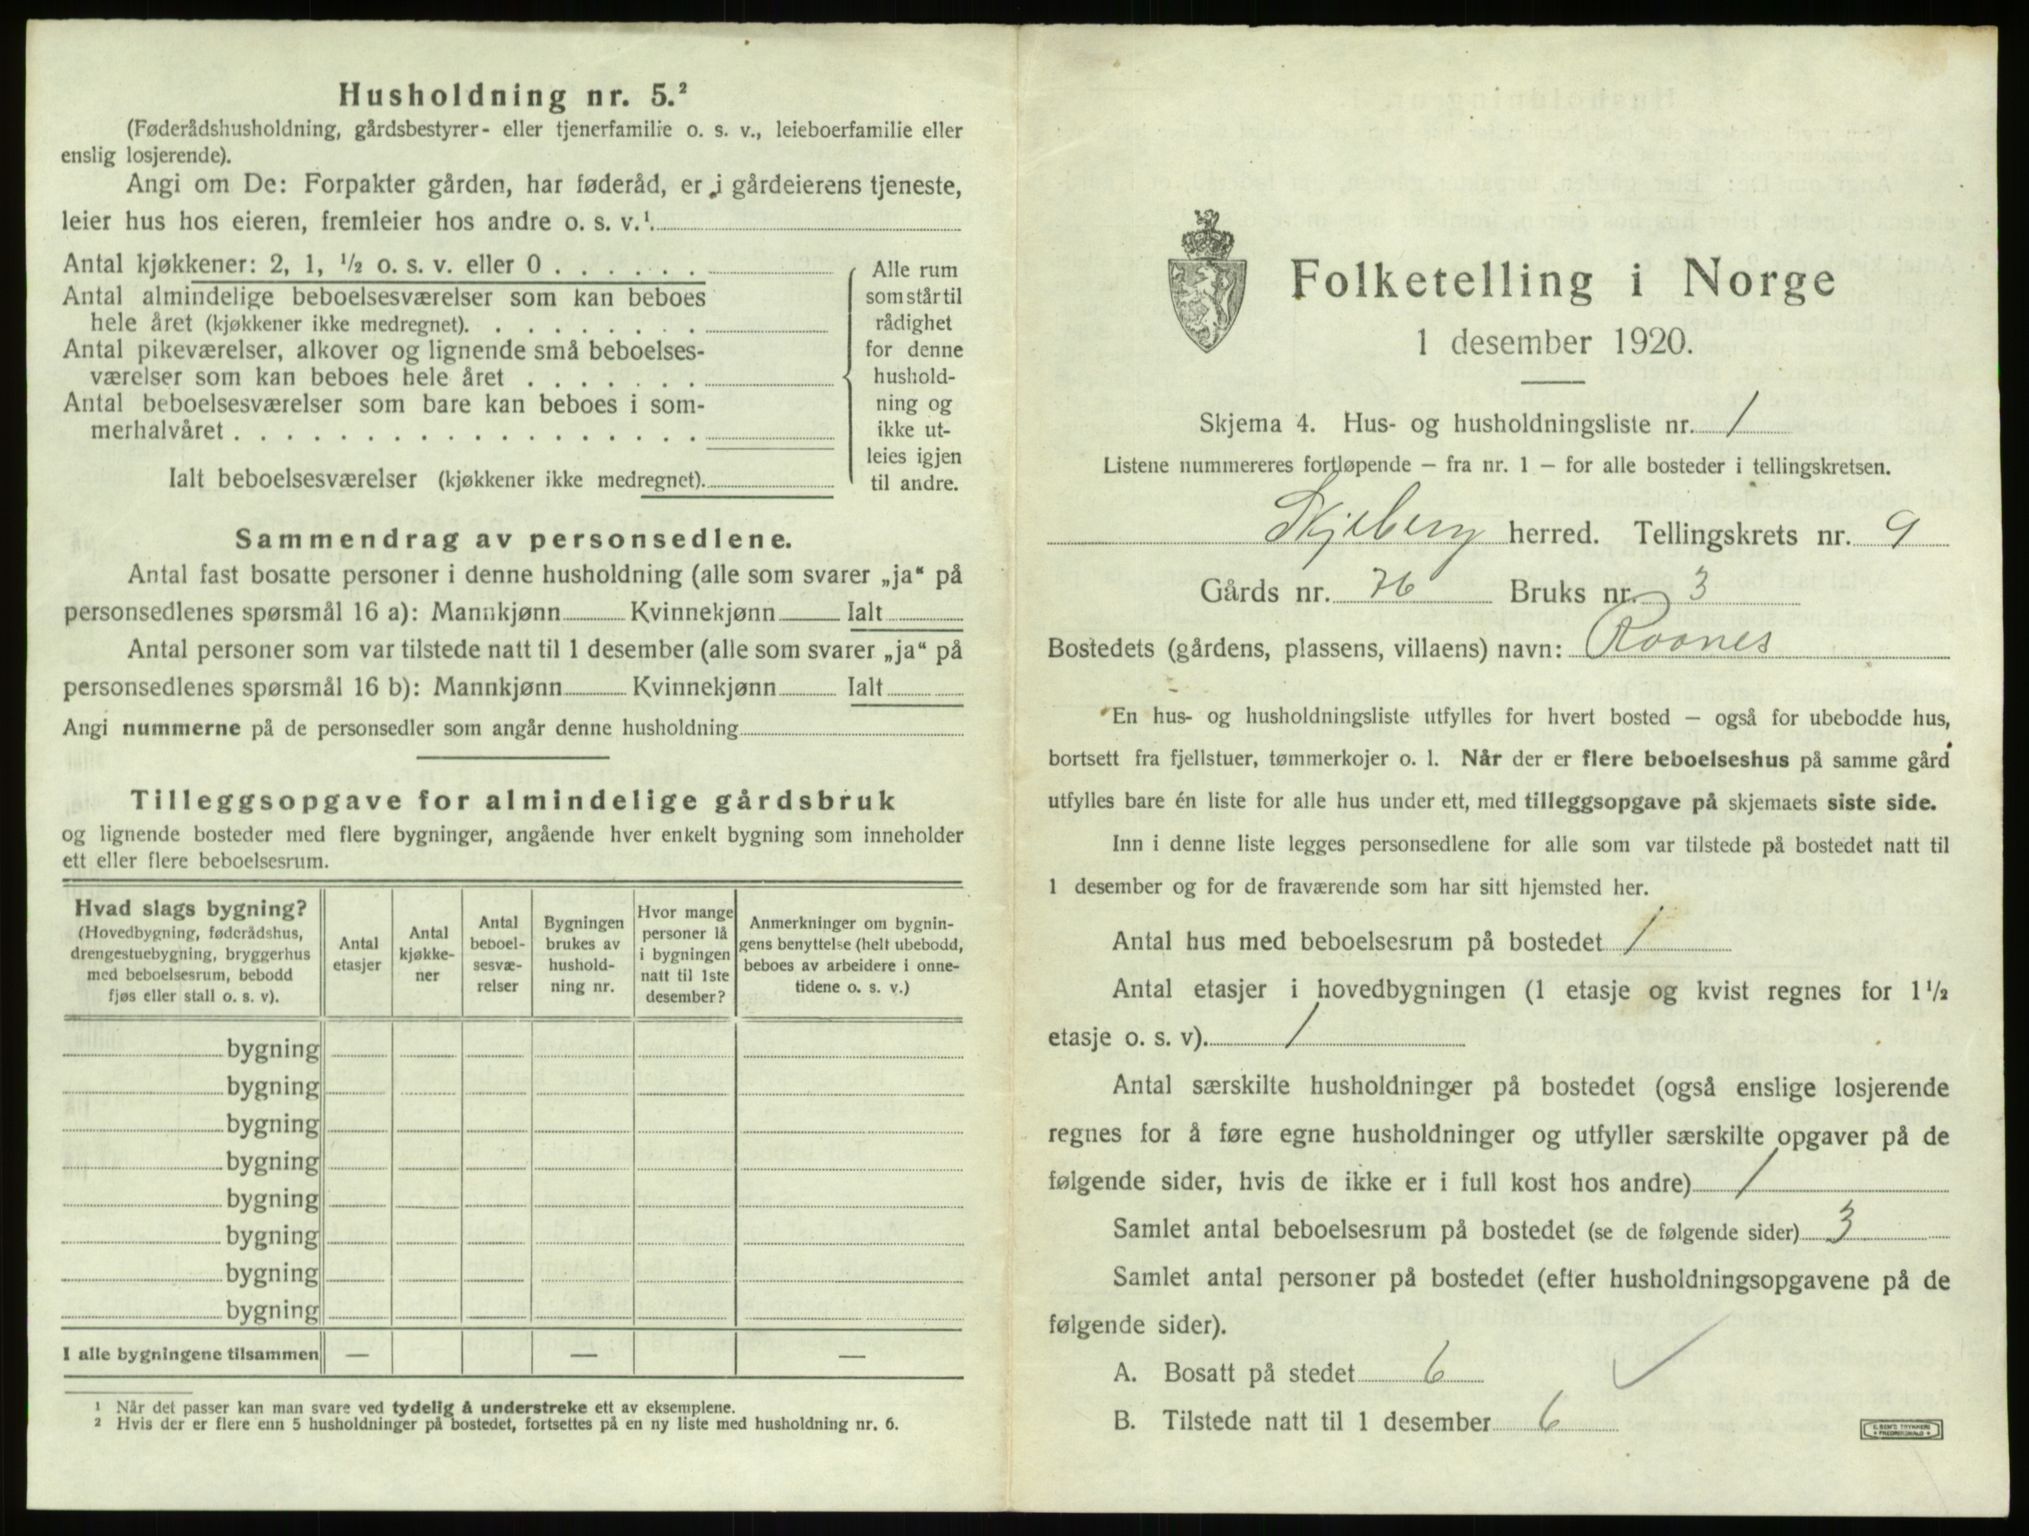 Husholdning nr. 5.²
(Føderådshusholdning, gårdsbestyrer- eller tjenerfamilie o. s. v., leieboerfamilie eller
enslig losjerende).
Angi om De: Forpakter gården, har føderåd, er i gårdeierens tjeneste,
leier hus hos eieren, fremleier hos andre o. s. v.¹
Antal kjøkkener: 2, 1, ½ o. s. v. eller 0 . . . . . .
Antal almindelige beboelsesværelser som kan beboes
hele året (kjøkkener ikke medregnet). . . . . . . . .
Antal pikeværelser, alkover og lignende små beboelses-
værelser som kan beboes hele året . . . . . . .
Antal beboelsesværelser som bare kan beboes i som-
merhalvåret . . . . . . . . . . . . . . . . . .
Ialt beboelsesværelser (kjøkkener ikke medregnet).
Alle rum
som står til
rådighet
for denne
hushold-
ning og
ikke ut-
leies igjen
til andre.
Sammendrag av personsedlene.
Antal fast bosatte personer i denne husholdning (alle som svarer „ja“ på
personsedlenes spørsmål 16 a): Mannkjønn Kvinnekjønn Ialt
Antal personer som var tilstede natt til 1 desember (alle som svarer „ja“ på
personsedlenes spørsmål 16 b): Mannkjønn Kvinnekjønn Ialt
Angi nummerne på de personsedler som angår denne husholdning
Tilleggsopgave for almindelige gårdsbruk
og lignende bosteder med flere bygninger, angående hver enkelt bygning som inneholder
ett eller flere beboelsesrum.
Hvad slags bygning?
(Hovedbygning, føderådshus,
drengestuebygning, bryggerhus
med beboelsesrum, bebodd
fjøs eller stall o. s. v).
Antal
etasjer
Antal
kjøkke-
ner
Antal
beboel-
sesvæ-
relser
Bygningen
brukes av
hushold-
ning nr.
Hvor mange
personer lå
i bygningen
natt til 1ste
desember?
Anmerkninger om bygnin-
gens benyttelse (helt ubebodd,
beboes av arbeidere i onne-
tidene o. s. v.)
bygning
bygning
bygning
bygning
bygning
bygning
bygning
bygning
I alle bygningene tilsammen — — —
¹ Når det passer kan man svare ved tydelig å understreke ett av eksemplene.
² Hvis der er flere enn 5 husholdninger på bostedet, fortsettes på en ny liste med husholdning nr. 6.
Folketelling i Norge
1 desember 1920.
Skjema 4. Hus- og husholdningsliste nr. 1
Listene nummereres fortløpende – fra nr. 1 – for alle bosteder i tellingskretsen.
Skjeberg herred. Tellingskrets nr. 9
Gårds nr. 76 Bruks nr. 3
Bostedets (gårdens, plassens, villaens) navn: Roones
En hus- og husholdningsliste utfylles for hvert bosted – også for ubebodde hus,
bortsett fra fjellstuer, tømmerkojer o. l. Når der er flere beboelseshus på samme gård
utfylles bare én liste for alle hus under ett, med tilleggsopgave på skjemaets siste side.
Inn i denne liste legges personsedlene for alle som var tilstede på bostedet natt til
1 desember og for de fraværende som har sitt hjemsted her.
Antal hus med beboelsesrum på bostedet 1
Antal etasjer i hovedbygningen (1 etasje og kvist regnes for 1½
etasje o. s. v). 1
Antal særskilte husholdninger på bostedet (også enslige losjerende
regnes for å føre egne husholdninger og utfyller særskilte opgaver på de
følgende sider, hvis de ikke er i full kost hos andre) 1
Samlet antal beboelsesrum på bostedet (se de følgende sider) 3
Samlet antal personer på bostedet (efter husholdningsopgavene på de
følgende sider).
A. Bosatt på stedet 6
B. Tilstede natt til 1 desember 6